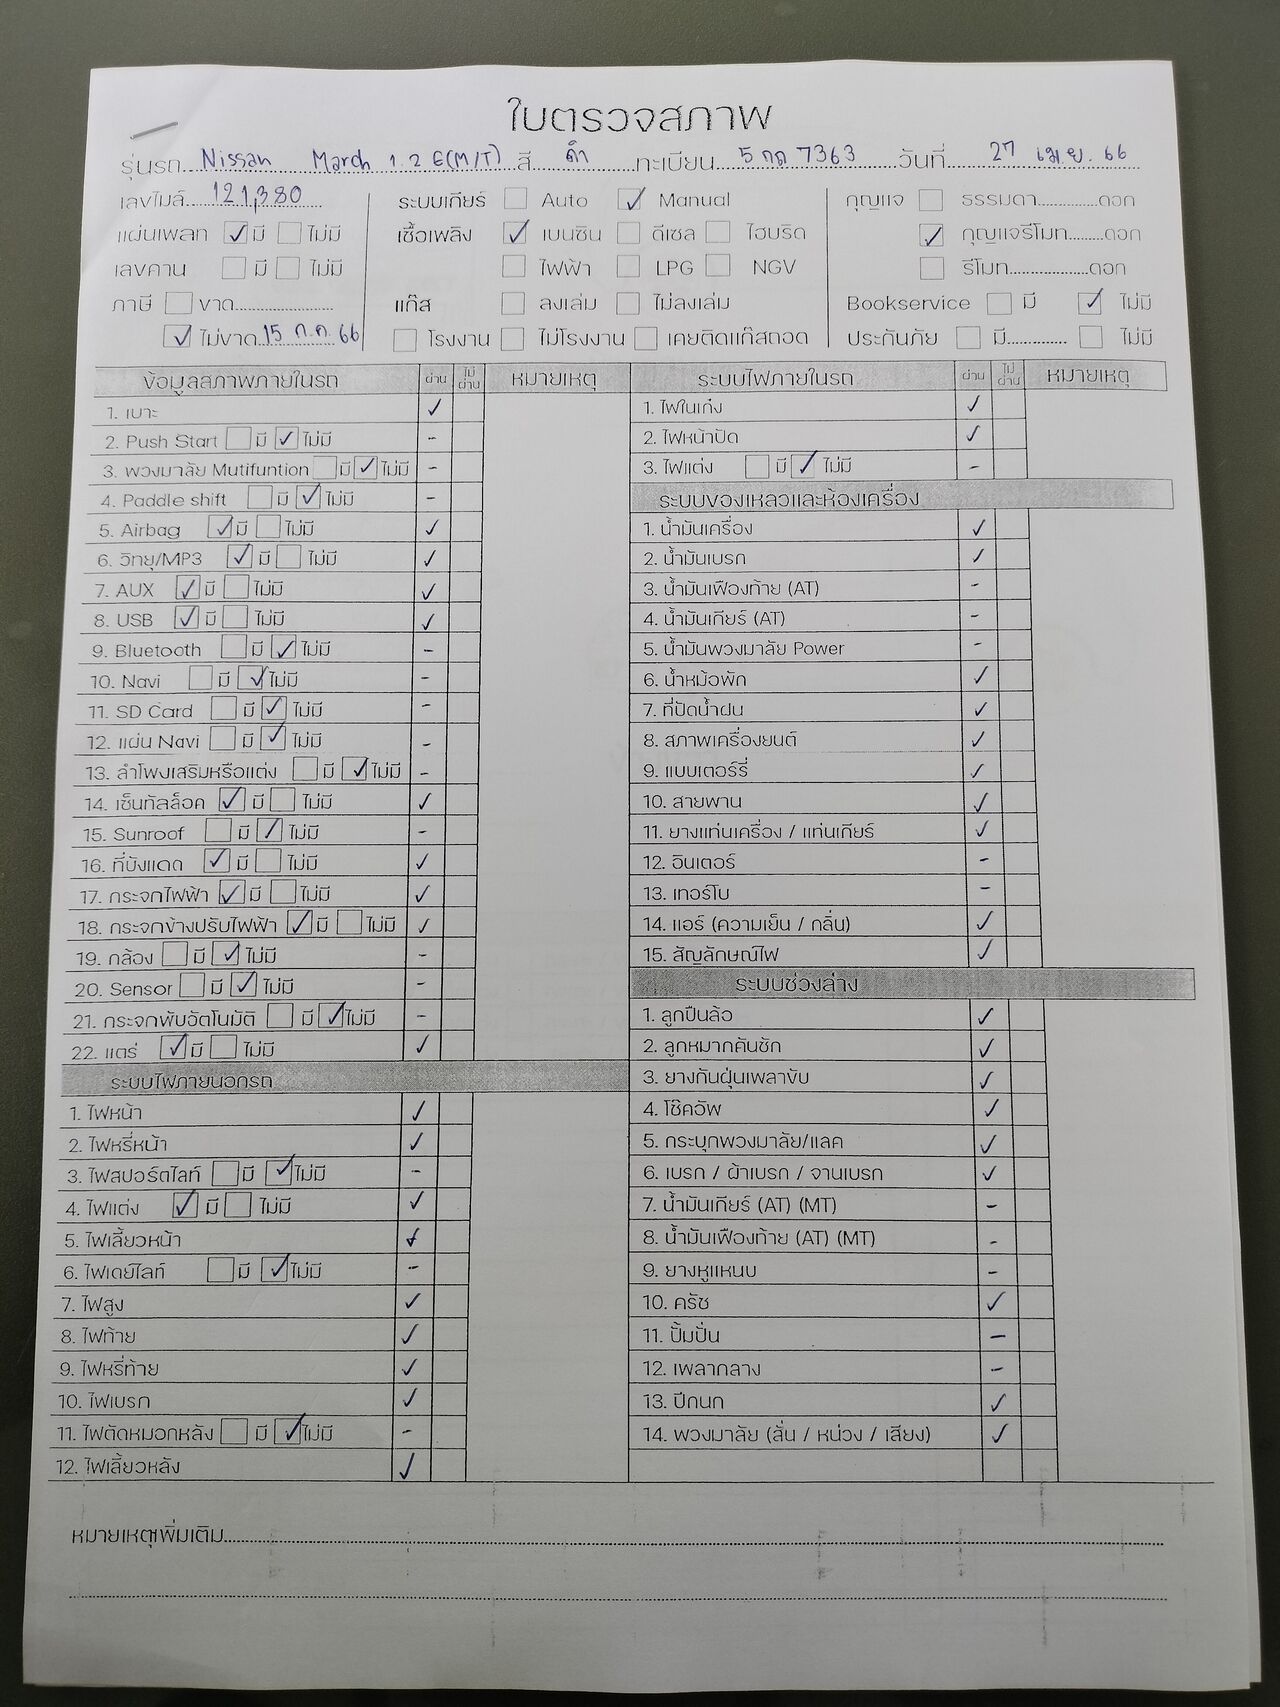 ใบตรวจสภาพ
รุ่นรถ Nissan March 1.2 E(M/T) สี ดำ ทะเบียน 5 กด 7363 วันที่ 27 เม.ย. 66
เลขไมล์ 121,380
แผ่นเพลท ✓ มี ไม่มี
เลขคาน มี ไม่มี
ภาษี ขาด
✓ ไม่ขาด 15 ก.ค. 66
ระบบเกียร์ Auto ✓ Manual
เชื้อเพลิง ✓ เบนซิน ดีเซล ไฮบริด
ไฟฟ้า LPG NGV
แก๊ส ลงเล่ม ไม่ลงเล่ม
โรงงาน ไม่โรงงาน เคยติดแก๊สถอด
กุญแจ ธรรมดา ดอก
✓ กุญแจรีโมท ดอก
รีโมท ดอก
Bookservice มี ✓ ไม่มี
ประกันภัย มี ไม่มี
ข้อมูลสภาพภายในรถ ผ่าน ไม่ผ่าน หมายเหตุ
1. เบาะ ✓
2. Push Start มี ✓ ไม่มี -
3. พวงมาลัย Mutifuntion มี ✓ ไม่มี -
4. Paddle shift มี ✓ ไม่มี -
5. Airbag ✓ มี ไม่มี ✓
6. วิทยุ/MP3 ✓ มี ไม่มี ✓
7. AUX ✓ มี ไม่มี ✓
8. USB ✓ มี ไม่มี ✓
9. Bluetooth มี ✓ ไม่มี -
10. Navi มี ✓ ไม่มี -
11. SD Card มี ✓ ไม่มี -
12. แผ่น Navi มี ✓ ไม่มี -
13. ลำโพงเสริมหรือแต่ง มี ✓ ไม่มี -
14. เซ็นทัลล็อค ✓ มี ไม่มี ✓
15. Sunroof มี ✓ ไม่มี -
16. ที่บังแดด ✓ มี ไม่มี ✓
17. กระจกไฟฟ้า ✓ มี ไม่มี ✓
18. กระจกข้างปรับไฟฟ้า ✓ มี ไม่มี ✓
19. กล้อง มี ✓ ไม่มี -
20. Sensor มี ✓ ไม่มี -
21. กระจกพับอัตโนมัติ มี ✓ ไม่มี -
22. แตร่ ✓ มี ไม่มี ✓
ระบบไฟภายนอกรถ
1. ไฟหน้า ✓
2. ไฟหรี่หน้า ✓
3. ไฟสปอร์ตไลท์ มี ✓ ไม่มี -
4. ไฟแต่ง ✓ มี ไม่มี ✓
5. ไฟเลี้ยวหน้า ✓
6. ไฟเดย์ไลท์ มี ✓ ไม่มี -
7. ไฟสูง ✓
8. ไฟท้าย ✓
9. ไฟหรี่ท้าย ✓
10. ไฟเบรก ✓
11. ไฟตัดหมอกหลัง มี ✓ ไม่มี -
12. ไฟเลี้ยวหลัง ✓
ระบบไฟภายในรถ ผ่าน ไม่ผ่าน หมายเหตุ
1. ไฟในเก๋ง ✓
2. ไฟหน้าปัด ✓
3. ไฟแต่ง มี ✓ ไม่มี -
ระบบของเหลวและห้องเครื่อง
1. น้ำมันเครื่อง ✓
2. น้ำมันเบรก ✓
3. น้ำมันเฟืองท้าย (AT) -
4. น้ำมันเกียร์ (AT) -
5. น้ำมันพวงมาลัย Power -
6. น้ำหม้อพัก ✓
7. ที่ปัดน้ำฝน ✓
8. สภาพเครื่องยนต์ ✓
9. แบบเตอร์รี่ ✓
10. สายพาน ✓
11. ยางแท่นเครื่อง / แท่นเกียร์ ✓
12. อินเตอร์ -
13. เทอร์โบ -
14. แอร์ (ความเย็น / กลิ่น) ✓
15. สัญลักษณ์ไฟ ✓
ระบบช่วงล่าง
1. ลูกปืนล้อ ✓
2. ลูกหมากคันชัก ✓
3. ยางกันฝุ่นเพลาขับ ✓
4. โช๊คอัพ ✓
5. กระบุกพวงมาลัย/แลค ✓
6. เบรก / ผ้าเบรก / จานเบรก ✓
7. น้ำมันเกียร์ (AT) (MT) -
8. น้ำมันเฟืองท้าย (AT) (MT) -
9. ยางหูแหนบ -
10. ครัช ✓
11. ปั้มปั่น -
12. เพลากลาง -
13. ปีกนก ✓
14. พวงมาลัย (ลั่น / หน่วง / เสียง) ✓
หมายเหตุเพิ่มเติม